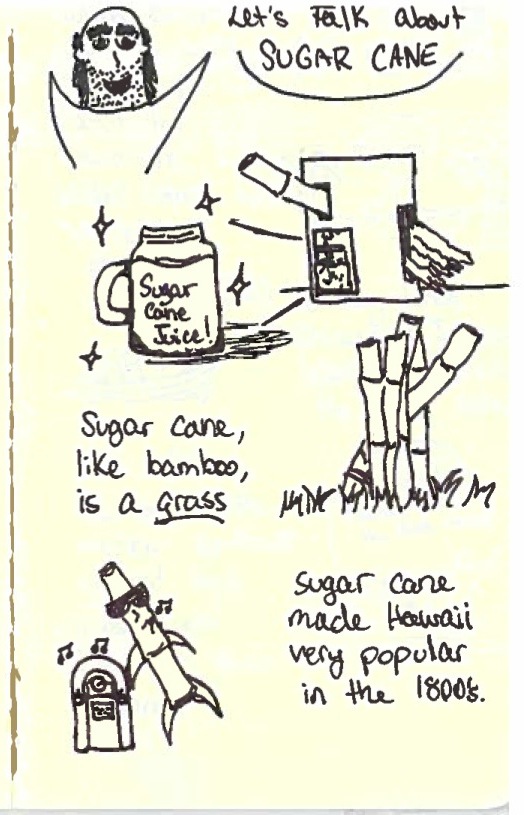 Let's Talk about
SUGAR CANE
Sugar
Cane
Juice!
Sugar cane,
like bamboo,
is a grass
sugar cane
made Hawaii
very popular
in the 1800's.